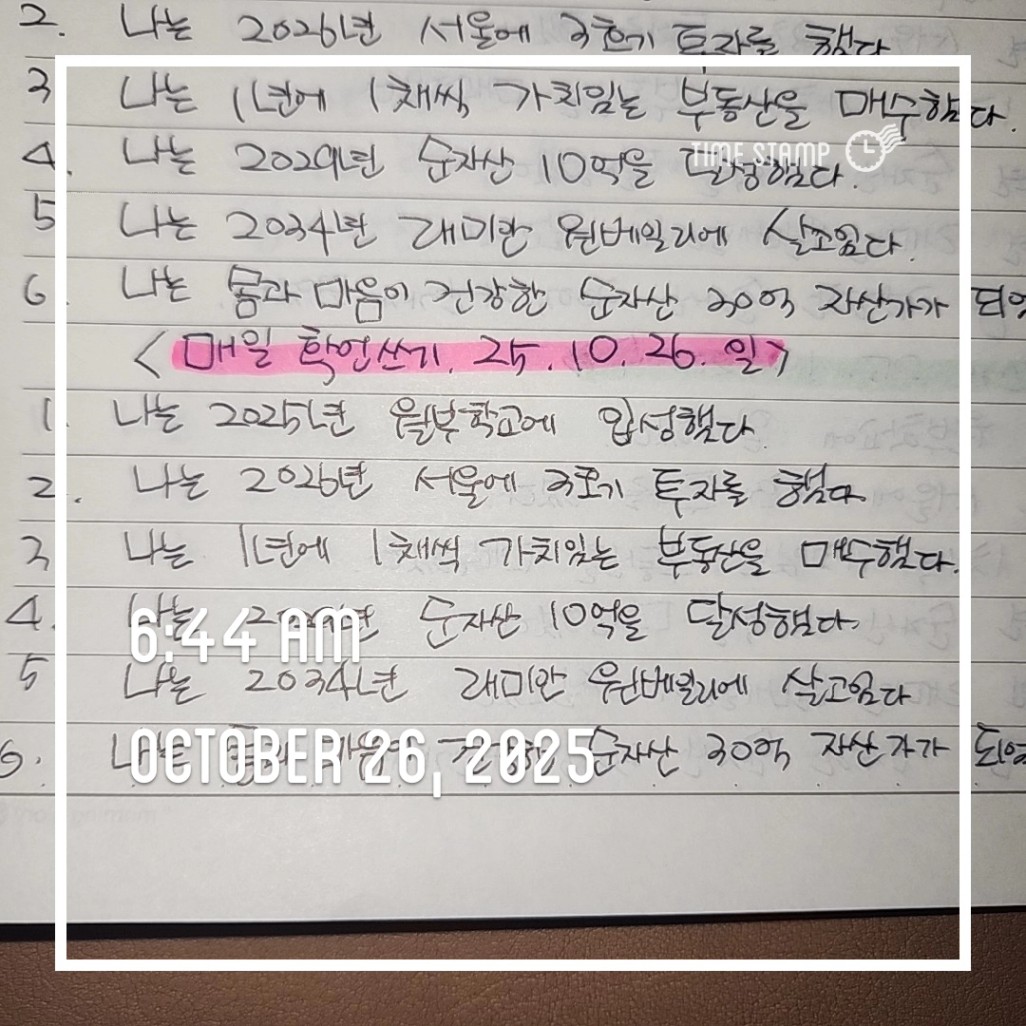 2. 나는 2026년 서울에 3호기 투자를 했다
3 나는 1년에 1채씩 가치있는 부동산을 매수했다.
4. 나는 2029년 순자산 10억을 달성했다.
TIME STAMP
5 나는 2034년 래미안 원베일리에 살고있다.
6. 나는 몸과 마음이 건강한 순자산 30억 자산가가 되었
<매일 확언쓰기. 25.10.26.일>
1. 나는 2025년 월부학교에 입성했다.
2. 나는 2026년 서울에 3호기 투자를 했다.
3 나는 1년에 1채씩 가치있는 부동산을 매수했다.
4. 나는 2029년 순자산 10억을 달성했다.
6:44 AM
5 나는 2034년 래미안 원베일리에 살고있다
6. 나는 몸과 마음이 건강한 순자산 30억 자산가가 되었
OCTOBER 26, 2025